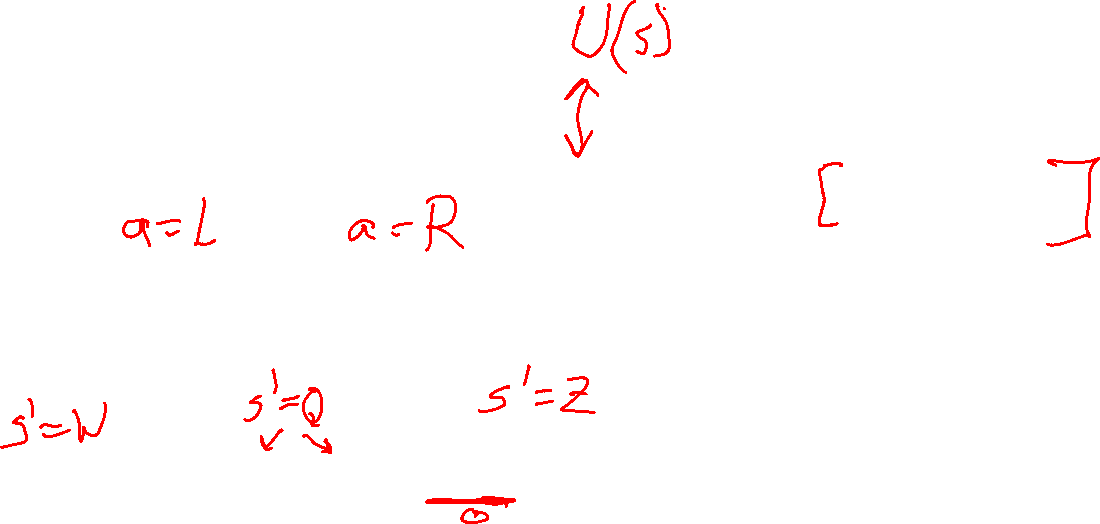 U(s)
[ ]
a=L a=R
s'=W s'=Q s'=Z